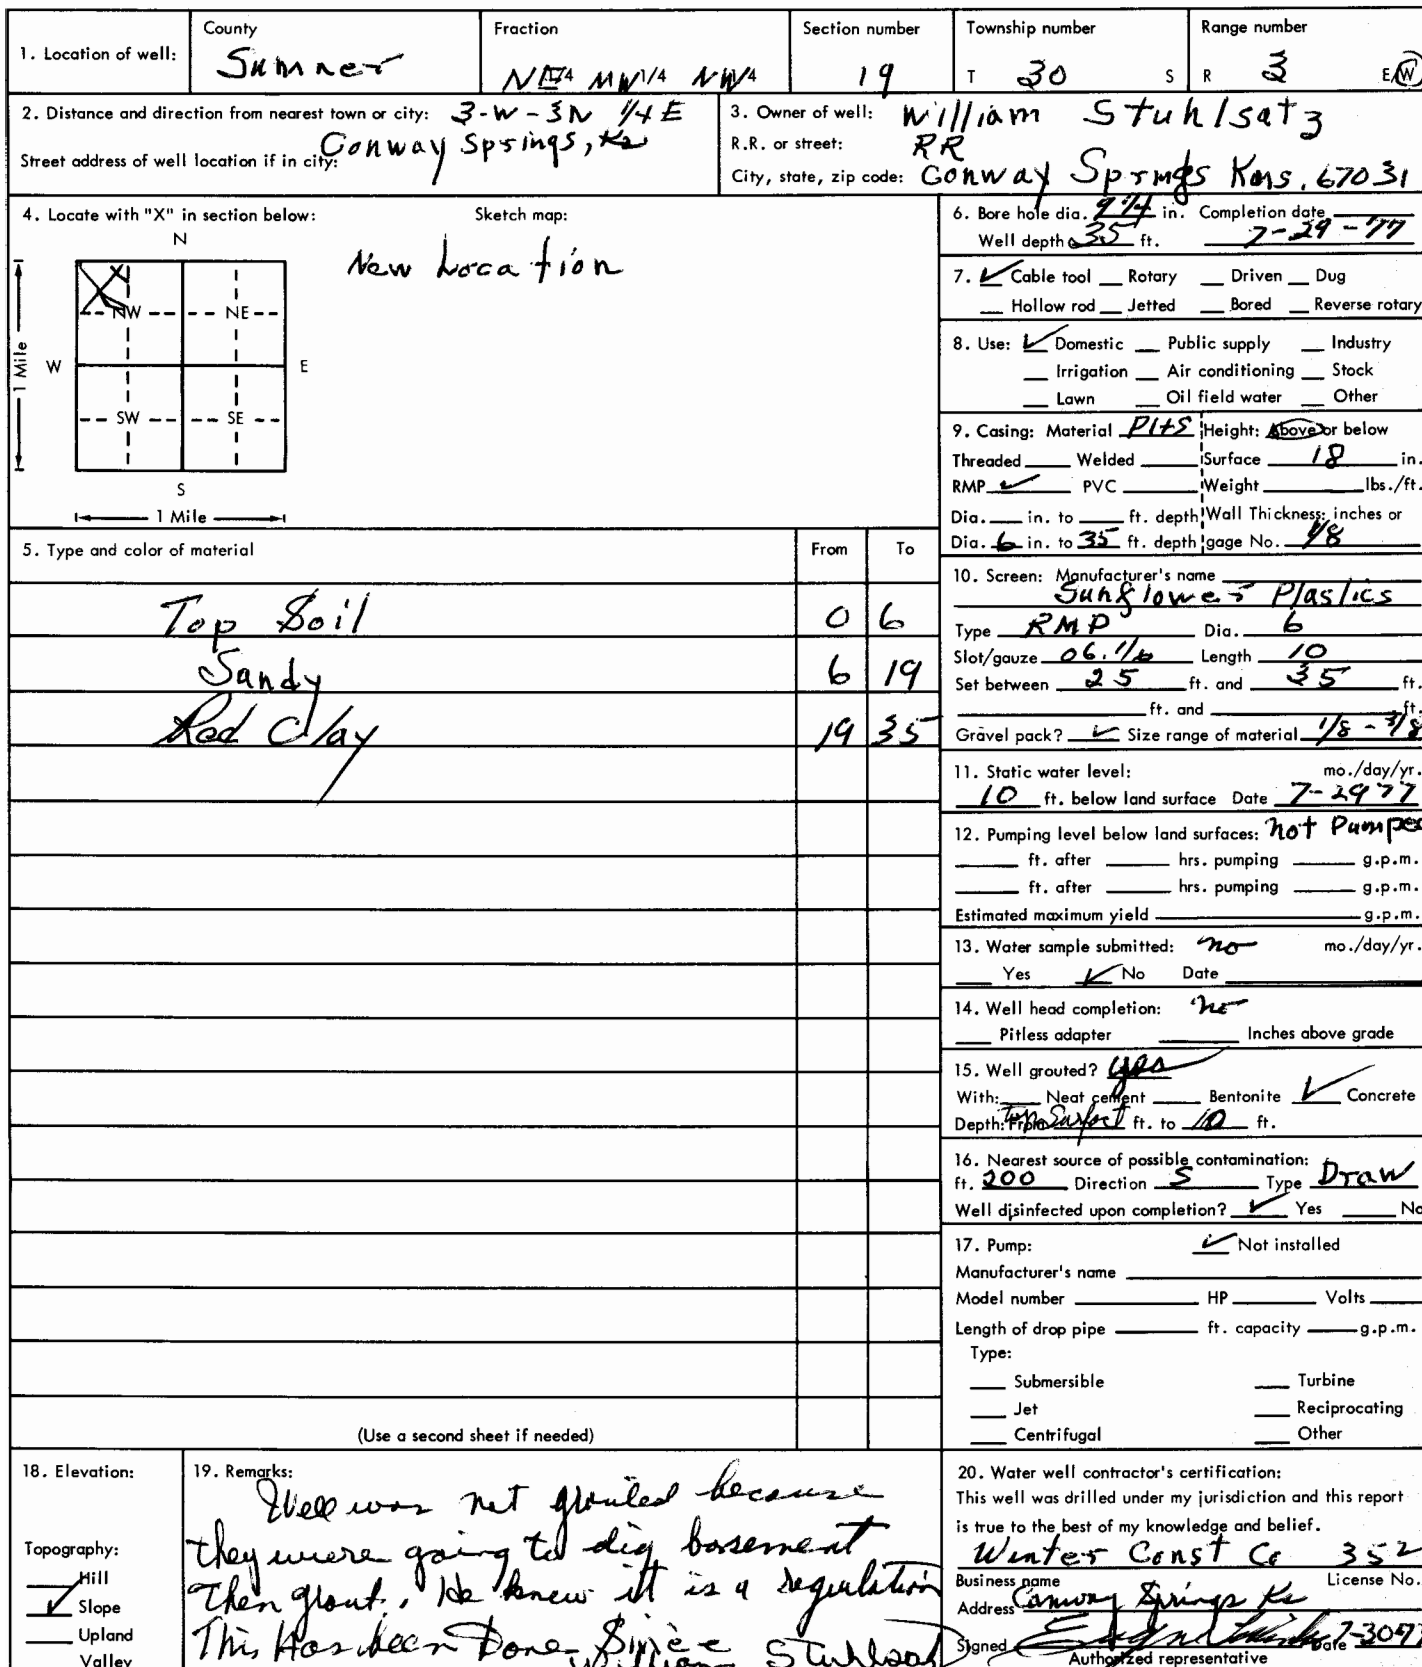 1. Location of well:
County
Sumner
Fraction
NE 1/4 NW 1/4 NW 1/4
Section number
19
Township number
T 30 S
Range number
R 3 E/W
2. Distance and direction from nearest town or city: 3-W-3N 1/4 E
Conway Springs, Ks
Street address of well location if in city:
3. Owner of well: William Stuhlsatz
R.R. or street: RR
City, state, zip code: Conway Springs Kans. 67031
4. Locate with "X" in section below: Sketch map:
New Location
N
NW NE
W E
1 Mile
SW SE
S
1 Mile
5. Type and color of material From To
Top Soil 0 6
Sandy 6 19
Red Clay 19 35
(Use a second sheet if needed)
6. Bore hole dia. 9 1/4 in. Completion date
Well depth 35 ft. 7-29-77
7. ✓ Cable tool __ Rotary __ Driven __ Dug
__ Hollow rod __ Jetted __ Bored __ Reverse rotary
8. Use: ✓ Domestic __ Public supply __ Industry
__ Irrigation __ Air conditioning __ Stock
__ Lawn __ Oil field water __ Other
9. Casing: Material Height: Above or below
Threaded ____ Welded ____ Surface 18 in.
RMP ✓ PVC ____ Weight ____ lbs./ft.
Dia. __ in. to __ ft. depth Wall Thickness: inches or
Dia. 6 in. to 35 ft. depth gage No. 1/8
10. Screen: Manufacturer's name
Sunflower Plastics
Type RMP Dia. 6
Slot/gauze Length 10
Set between 25 ft. and 35 ft.
____ ft. and ____ ft.
Gravel pack? ✓ Size range of material 1/8 - 3/8
11. Static water level: mo./day/yr.
10 ft. below land surface Date 7-29 77
12. Pumping level below land surfaces: not Pumped
____ ft. after ____ hrs. pumping ____ g.p.m.
____ ft. after ____ hrs. pumping ____ g.p.m.
Estimated maximum yield ____ g.p.m.
13. Water sample submitted: no mo./day/yr.
__ Yes ✓ No Date ____
14. Well head completion: no
__ Pitless adapter ____ Inches above grade
15. Well grouted? yes
With: __ Neat cement __ Bentonite ✓ Concrete
Depth: From Top Surfact ft. to 10 ft.
16. Nearest source of possible contamination:
ft. 200 Direction S Type Draw
Well disinfected upon completion? ✓ Yes __ No
17. Pump: ✓ Not installed
Manufacturer's name ____
Model number ____ HP ____ Volts ____
Length of drop pipe ____ ft. capacity ____ g.p.m.
Type:
__ Submersible __ Turbine
__ Jet __ Reciprocating
__ Centrifugal __ Other
18. Elevation:
Topography:
__ Hill
✓ Slope
__ Upland
Valley
19. Remarks:
Well was not grouted because
they were going to dig basement
then grout. He knew it is a regulation
This Has been Done Since
William Stuhlsatz
20. Water well contractor's certification:
This well was drilled under my jurisdiction and this report
is true to the best of my knowledge and belief.
Winter Const Co 352
Business name License No.
Address Conway Springs Ks
Signed Date 7-30 77
Authorized representative